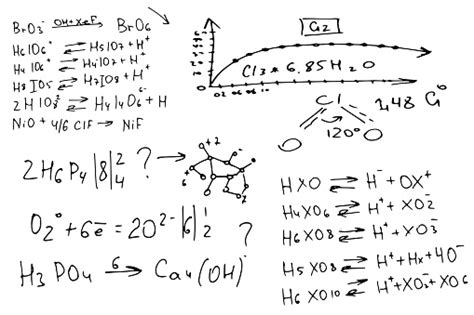 BrO3⁻ OH+XeF → BrO6⁻
H6IO6⁺ ⇌ H5IO7 + H⁺
H4IO6⁺ ⇌ H4IO7 + H⁺
H8IO5 ⇌ H7IO8 + H⁺
2HIO8 ⇌ H4I4O6 + H
NiO + 4/6 ClF → NiF
G2
Cl3 * 6.85H2O
Cl
1,48 G°
O
120°
O
2H6P4 |8| 2 4 ? →
+2
+6
O2° + 6e̅ = 2O²⁻ |6| 1 2 ?
H3PO4 6→ Ca4(OH)
HXO ⇌ H⁻ + OX⁺
H4XO6 ⇌ H⁺ + XO2⁻
H6XO8 ⇌ H⁺ + XO3⁻
H5XO8 ⇌ H⁺ + Hx + 4O⁻
H6XO10 ⇌ H⁺ + XO3⁻ + XO6